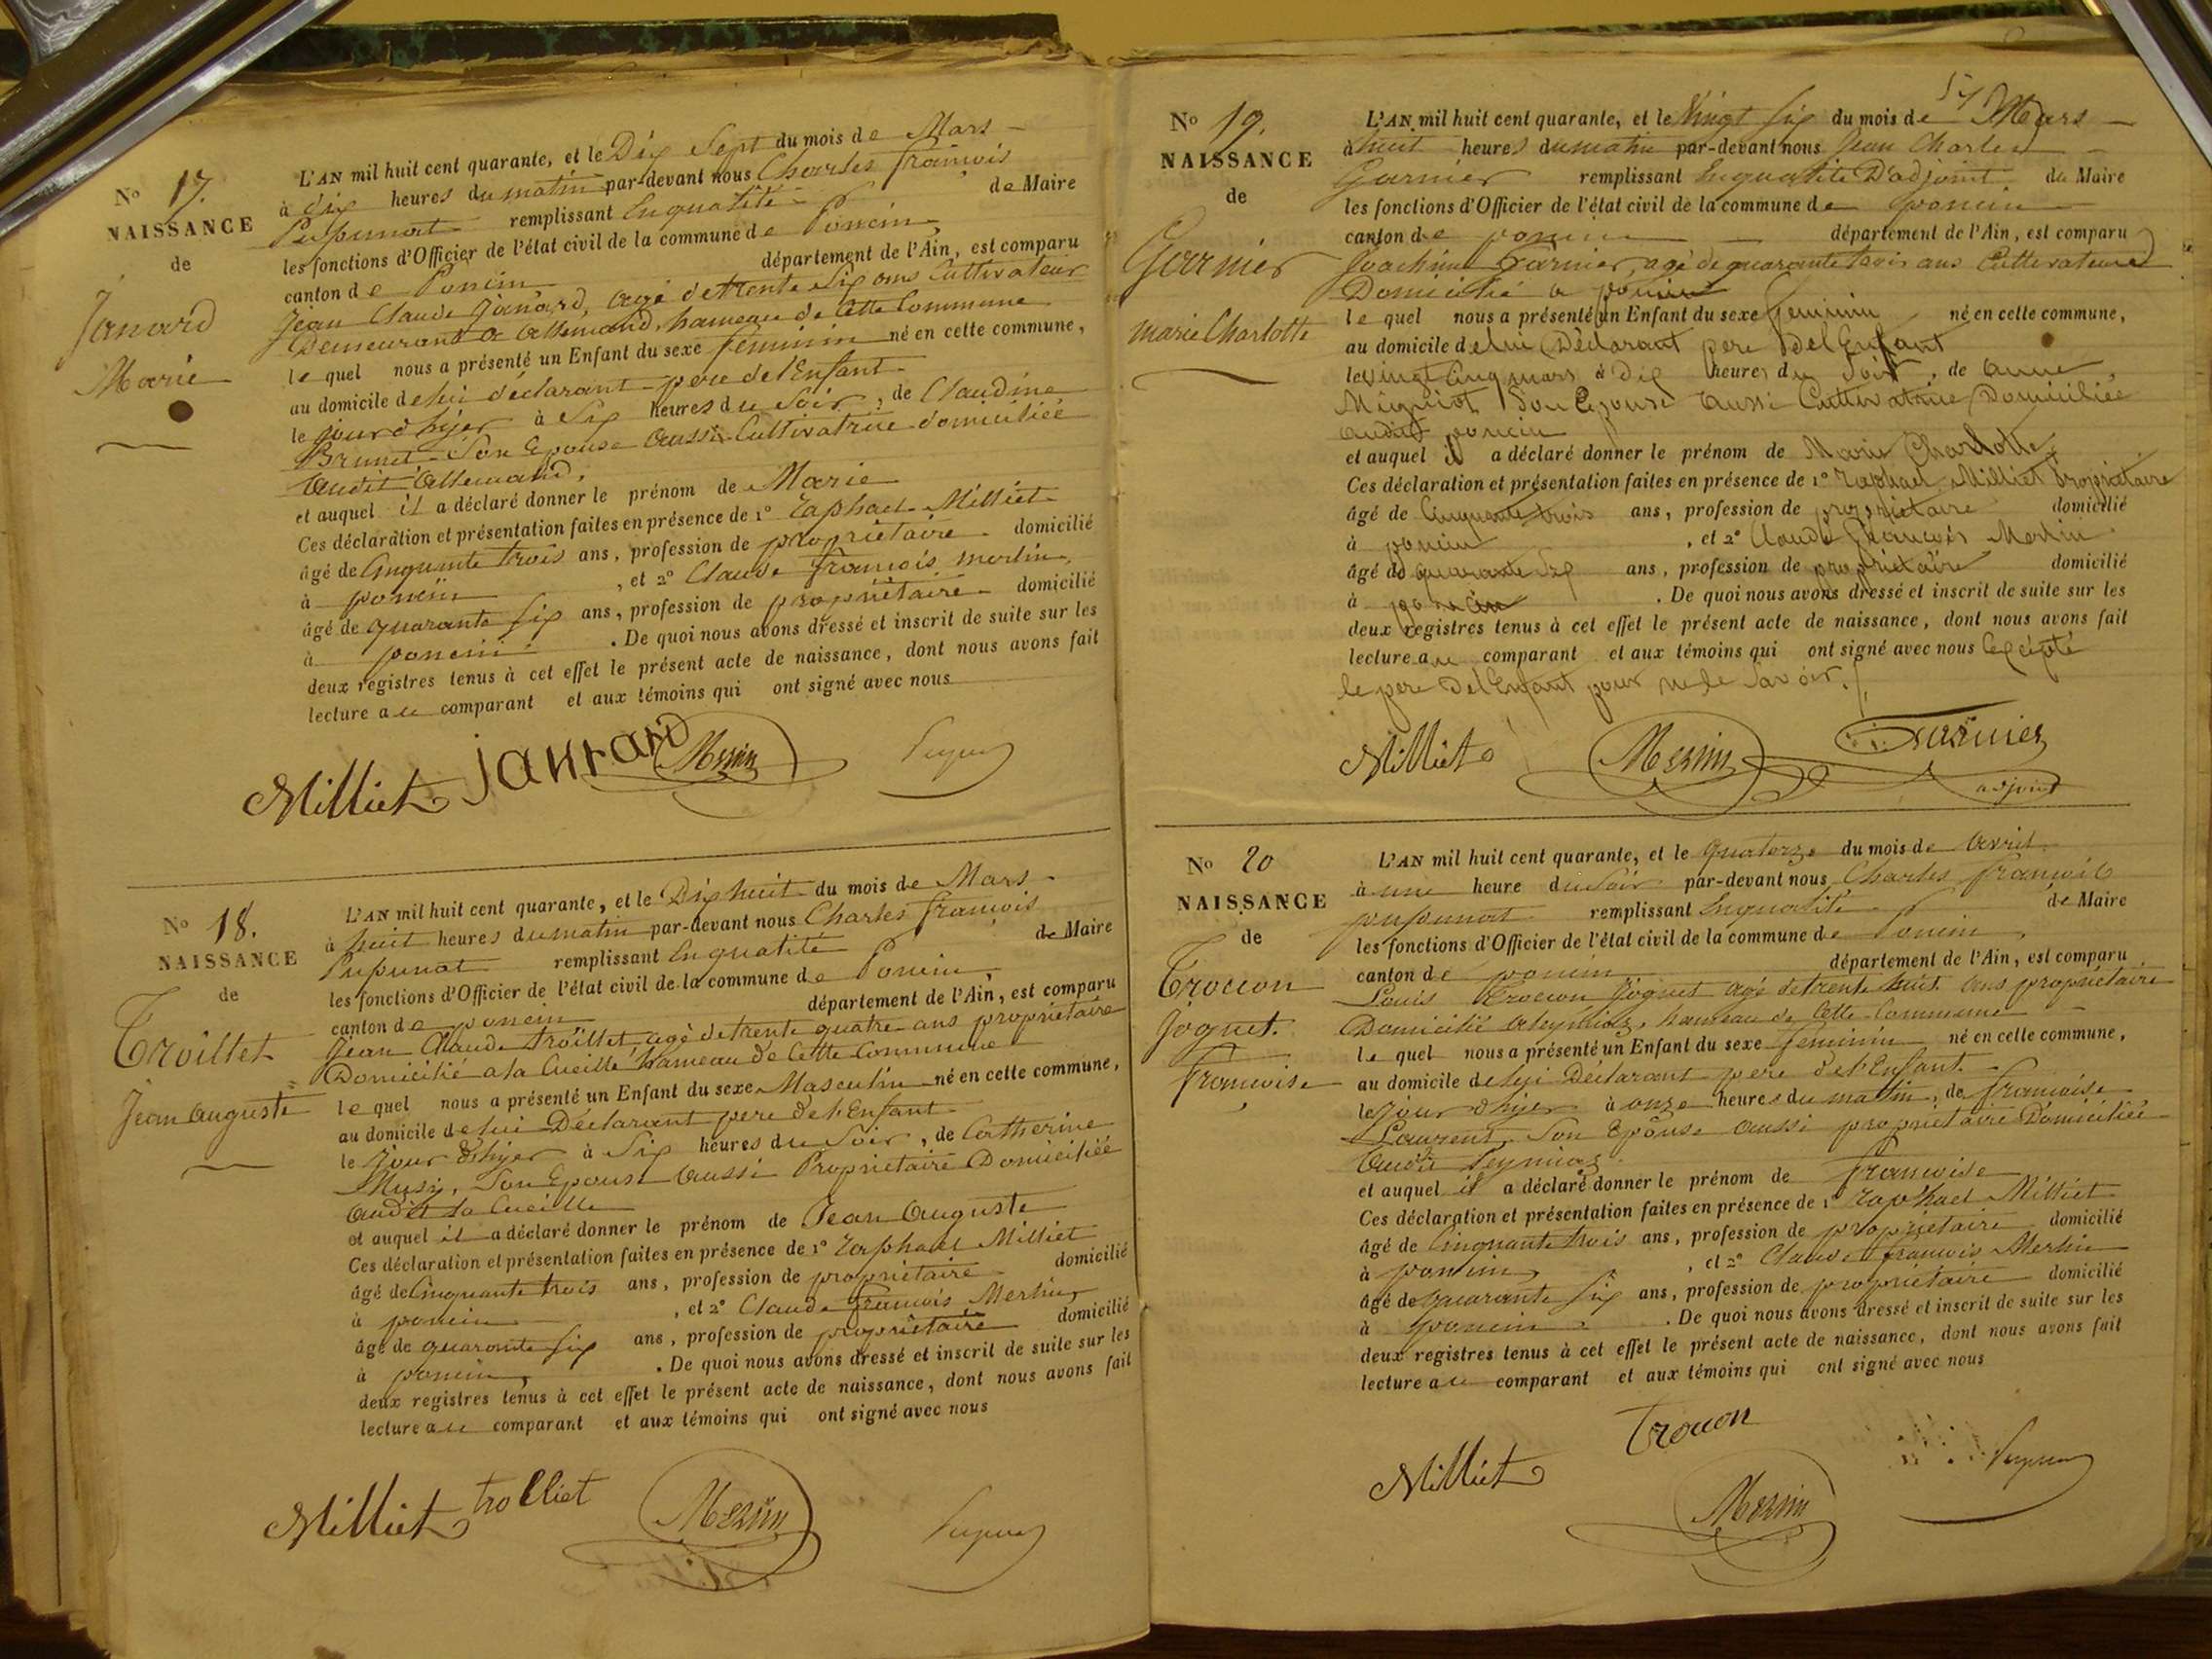 No 17.
NAISSANCE
de
Janard
Marie
L'AN mil huit cent quarante, et le Dix Sept du mois de Mars
à dix heures du matin par-devant nous Charles françois
Pupunat remplissant En qualité de Maire
les fonctions d'Officier de l'état civil de la commune de Poncin,
canton de Poncin département de l'Ain, est comparu
Jean Claude Janard, agé de trente Six ans Cultivateur
Demeurant a allemand, hameau de Cette Commune
le quel nous a présenté un Enfant du sexe féminin né en cette commune,
au domicile de lui déclarant pere de l'Enfant
le jour d'hyer à Six heures du Soir, de Claudine
Brunet Son Epouse aussi Cultivatrice domiciliée
audit allemand.
et auquel il a déclaré donner le prénom de Marie
Ces déclaration et présentation faites en présence de 1° Raphael Milliet
âgé de Cinquante trois ans, profession de propriétaire domicilié
à poncin, et 2° Claude françois merlin,
âgé de quarante Six ans, profession de propriétaire domicilié
à poncin. De quoi nous avons dressé et inscrit de suite sur les
deux registres tenus à cet effet le présent acte de naissance, dont nous avons fait
lecture au comparant et aux témoins qui ont signé avec nous
Milliet janrard Merlin
No 18.
NAISSANCE
de
Troillet
Jean Auguste
L'AN mil huit cent quarante, et le Dix huit du mois de Mars
à huit heures du matin par-devant nous Charles françois
Pupunat remplissant En qualité de Maire
les fonctions d'Officier de l'état civil de la commune de Poncin,
canton de poncin département de l'Ain, est comparu
Jean Claude troillet agé de trente quatre ans propriétaire
Domicilié a la Cueille hameau de Cette Commune
le quel nous a présenté un Enfant du sexe Masculin né en cette commune,
au domicile de lui Déclarant pere de l'Enfant
le Jour d'hyer à Six heures du Soir, de Catherine
Musy, Son Epouse aussi Propriétaire Domiciliée
audit la Cueille
et auquel il a déclaré donner le prénom de Jean Auguste
Ces déclaration et présentation faites en présence de 1° Raphael Milliet
âgé de Cinquante trois ans, profession de propriétaire domicilié
à poncin, et 2° Claude françois Merlin,
âgé de quarante Six ans, profession de propriétaire domicilié
à poncin. De quoi nous avons dressé et inscrit de suite sur les
deux registres tenus à cet effet le présent acte de naissance, dont nous avons fait
lecture au comparant et aux témoins qui ont signé avec nous
Milliet trolliet Merlin
No 19.
NAISSANCE
de
Garnier
marie Charlotte
L'AN mil huit cent quarante, et le Vingt Six du mois de Mars
à huit heures du matin par-devant nous Jean Charles
Garnier remplissant En qualité D'adjoint du Maire
les fonctions d'Officier de l'état civil de la commune de poncin
canton de poncin département de l'Ain, est comparu
Joachim Garnier, agé de quarante trois ans Cultivateur
Domicilié a poncin
le quel nous a présenté un Enfant du sexe feminin né en cette commune,
au domicile de lui Déclarant pere Del Enfant
le vingt Cinq mars à Dix heures du Soir, de anne
Migniot Son Epouse aussi Cultivatrice Domiciliée
audit poncin
et auquel il a déclaré donner le prénom de Marie Charlotte,
Ces déclaration et présentation faites en présence de 1° Raphael Milliet Propriétaire
âgé de Cinquante trois ans, profession de propriétaire domicilié
à poncin, et 2° Claude François Merlin
âgé de quarante Six ans, profession de propriétaire domicilié
à poncin. De quoi nous avons dressé et inscrit de suite sur les
deux registres tenus à cet effet le présent acte de naissance, dont nous avons fait
lecture au comparant et aux témoins qui ont signé avec nous Excepté
le pere Del Enfant pour ne le Savoir.
Milliet Merlin Garnier
adjoint
No 20
NAISSANCE
de
Trocon
Joguet.
francoise
L'AN mil huit cent quarante, et le quatorze du mois de Avril
à une heure du Soir par-devant nous Charles françois
pupunat remplissant En qualité de Maire
les fonctions d'Officier de l'état civil de la commune de Poncin,
canton de poncin département de l'Ain, est comparu
Louis Trocon Joguet agé de trente huit ans propriétaire
Domicilié a leymiaz, hameau de Cette Commune
le quel nous a présenté un Enfant du sexe feminin né en cette commune,
au domicile de lui Déclarant pere de l'Enfant
le Jour d'hyer à onze heures du matin, de francoise
Laurent, Son Epouse aussi propriétaire Domiciliée
audit leymiaz
et auquel il a déclaré donner le prénom de francoise
Ces déclaration et présentation faites en présence de 1° raphael Milliet
âgé de Cinquante trois ans, profession de propriétaire domicilié
à poncin, et 2° Claude françois Merlin
âgé de quarante Six ans, profession de propriétaire domicilié
à poncin. De quoi nous avons dressé et inscrit de suite sur les
deux registres tenus à cet effet le présent acte de naissance, dont nous avons fait
lecture au comparant et aux témoins qui ont signé avec nous
Milliet Trocon
Merlin